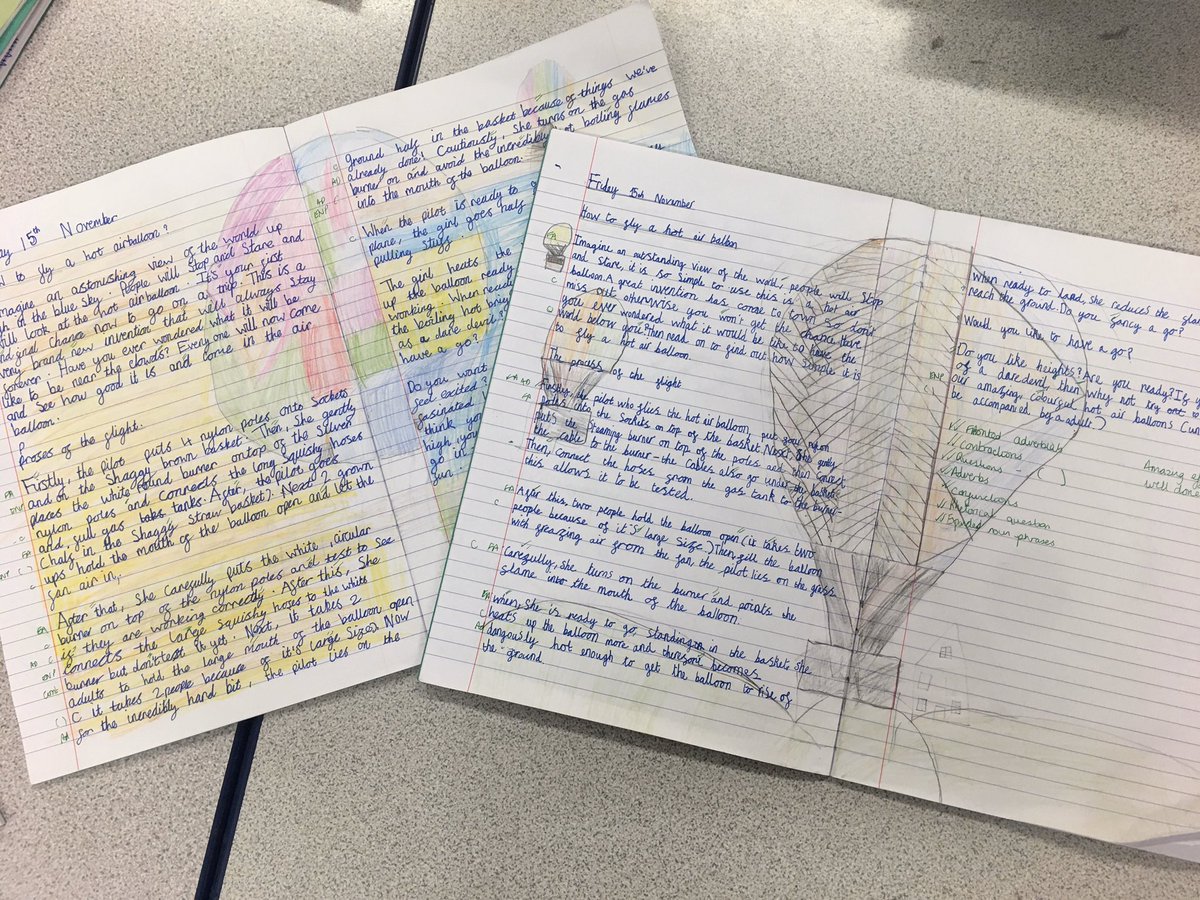 ay 15th November
to fly a hot airballoon?
magine an astonishing view of the world up
gh in the blue sky. People will stop and stare and
will look at the hot airballoon. It's your first
and final chance now to go on a trip. This is a
very brand new invention that will always stay
forever. Have you ever wondered what it will be
like to be near the clouds? Every one will now come
and see how good it is and come in the air
balloon.
Proses of the flight.
Firstly, the pilot puts 4 nylon poles onto sockets
and on the shaggy brown basket. Then, she gently
places the white round burner ontop of the silver
nylon poles and connects the long squishy hoses
and, full gas tanks. After, the pilot goes
in the shaggy straw basket). Next 2 grown
ups hold the mouth of the balloon open and let the
fan air in.
After that, she carefully puts the white, circular
burner on top of the nylon poles and test to see
if they are working correctly. After this, she
connects the large squishy hoses to the white
burner but don't test it yet. Next, it takes 2
adults to hold the large mouth of the balloon open
C it takes 2 people because of it's large size). Now
for the incredibly hard bit, the pilot lies on the
ground half in the basket because of things we've
already done. Cautiously, she turns on the gas
burner on and avoid the incredibly hot boiling flames
into the mouth of the balloon.
When the pilot is ready to
plane, the girl goes half
pulling stuff
The girl heats the
up the balloon ready
working. When ready
the boiling hot
as a dare devil?
have a go?
Do you want
feel excited?
fasinated
think you
high, you
go in
fun
Friday 15th November
How to fly a hot air ballon
Imagine an outstanding view of the world, people will stop
and stare, it is so simple to use this is a hot air
balloon. A great invention has come to town so don't
miss out otherwise you won't get the chance. Have
you ever wondered what it would be like to have the
world below you? then read on to find out how simple it is
to fly a hot air balloon.
The prosess of the flight
Firstly, the pilot who flies the hot air balloon, put four nylon
poles into the sockits on top of the basket. Next, she gently
puts the steaming burner on top of the poles and then connect
the cable to the burner-the cables also go under the basket.
Then, connect the hoses from the gas tank to the burner-
this allows it to be tested.
After this, two people hold the balloon open (it takes two
people because of it's large size.) Then, fill the balloon
with greazing air from the fan, the pilot lies on the grass.
Carefully, she turns on the burner and points the
flame into the mouth of the balloon.
where, she is ready to go, standing in the basket she
heats up the balloon more and therefore becomes
dangously hot enough to get the balloon to rise of
the ground
When ready to land, she reduces the
reach the ground. Do you fancy a go?
Would you like to have a go?
Do you like heights? Are you ready? If
of a daredevil, then why not try out
our amazing, colourful hot air balloons
be accompanied by a adult.)
Fronted adverbials
Contractions
Questions
Adverbs
Conjunctions
Rhetorical question
Expanded noun phrases
( )
Amazing
well don